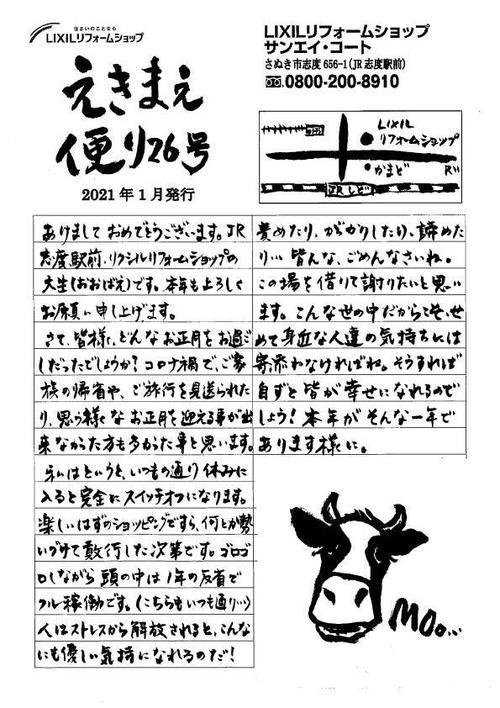 住まいのことなら
LIXILリフォームショップ
えきまえ
便り26号
2021年1月発行
LIXILリフォームショップ
サンエイ・コート
さぬき市志度656-1(JR志度駅前)
0800-200-8910
LIXIL
リフォームショップ
かまど
R11
JRしど
あけまして おめでとうございます。JR
志度駅前、リクシルリフォームショップの
大生(おおばえ)です。本年も よろしく
お願い申し上げます。
さて、皆様、どんな お正月を お過ご
しだったでしょうか? コロナ禍で、ご家
族の帰省や、ご旅行を見送られた
り、思う様な お正月を迎える事が出
来なかった方も多かった事と思います。
私はというと、いつもの通り 休みに
入ると完全に スイッチオフになります。
楽しいはずのショッピングですら、何とか勢
いづけて敢行した次第です。ゴロゴ
ロしながら 頭の中は 1年の反省で
フル稼働です。(こちらも いつも通り…)
人はストレスから 解放されると、こんな
にも優しい気持になれるのだ!
責めたり、がっかりしたり、諦めた
り… 皆んな、ごめんなさいね。
この場を借りて謝りたいと思い
ます。こんな世の中だからこそ、せ
めて身近な人達の気持ちには
寄添わなければね。そうすれば
自ずと 皆が 幸せになれるので
しょう! 本年が そんな一年で
あります様に。
Moo...